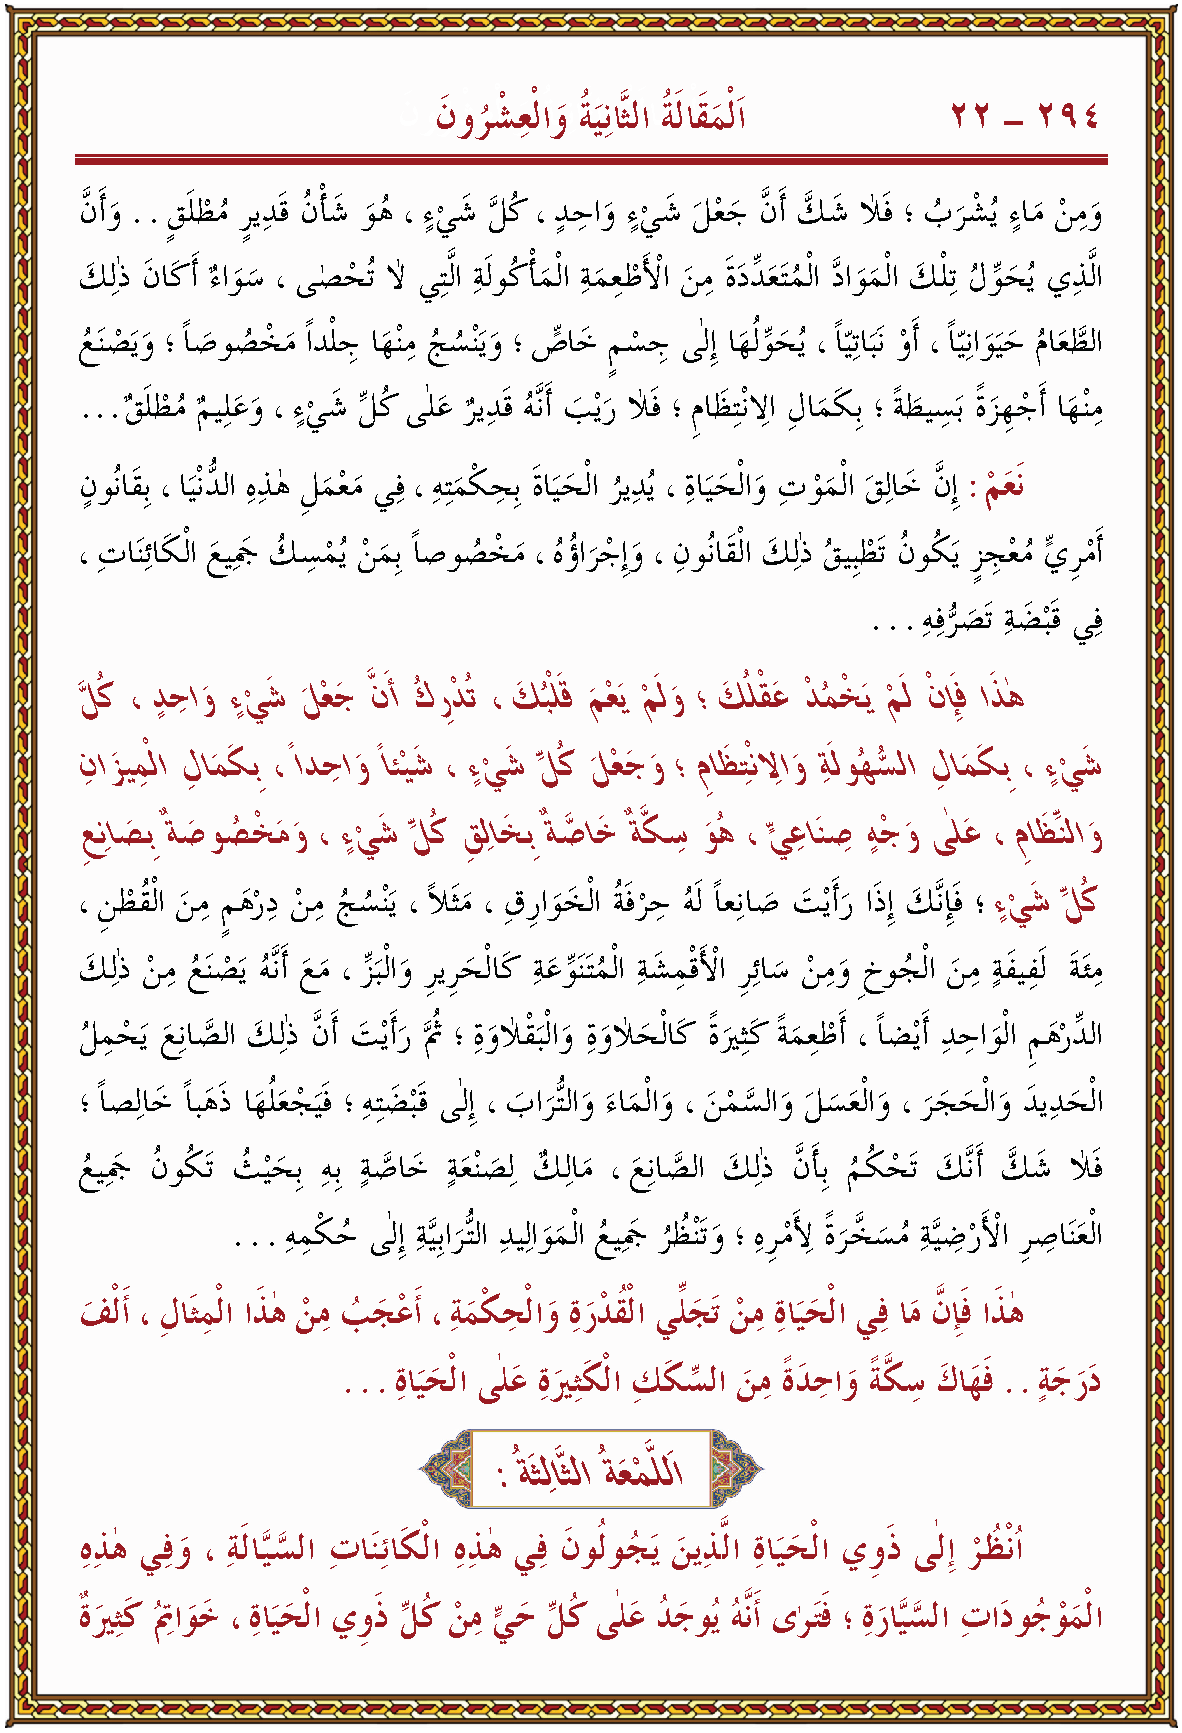 ٢٩٤ – ٢٢ اَلْمَقَالَةُ الثَّانِيَةُ وَالْعِشْرُونَ
وَمِنْ مَاءٍ يُشْرَبُ ؛ فَلاٰ شَكَّ أَنَّ جَعْلَ شَيْءٍ وَاحِدٍ ، كُلَّ شَيْءٍ ، هُوَ شَأْنُ قَدِيرٍ مُطْلَقٍ . . وَأَنَّ
الَّذِي يُحَوِّلُ تِلْكَ الْمَوَادَّ الْمُتَعَدِّدَةَ مِنَ الْأَطْعِمَةِ الْمَأْكُولَةِ الَّتِي لاٰ تُحْصٰى ، سَوَاءٌ أَكَانَ ذٰلِكَ
الطَّعَامُ حَيَوَانِيّاً ، أَوْ نَبَاتِيّاً ، يُحَوِّلُهَا إِلٰى جِسْمٍ خَاصٍّ ؛ وَيَنْسُجُ مِنْهَا جِلْداً مَخْصُوصاً ؛ وَيَصْنَعُ
مِنْهَا أَجْهِزَةً بَسِيطَةً ؛ بِكَمَالِ الاِنْتِظَامِ ؛ فَلاٰ رَيْبَ أَنَّهُ قَدِيرٌ عَلٰى كُلِّ شَيْءٍ ، وَعَلِيمٌ مُطْلَقٌ . . .
نَعَمْ : إِنَّ خَالِقَ الْمَوْتِ وَالْحَيَاةِ ، يُدِيرُ الْحَيَاةَ بِحِكْمَتِهِ ، فِي مَعْمَلِ هٰذِهِ الدُّنْيَا ، بِقَانُونٍ
أَمْرِيٍّ مُعْجِزٍ يَكُونُ تَطْبِيقُ ذٰلِكَ الْقَانُونِ ، وَإِجْرَاؤُهُ ، مَخْصُوصاً بِمَنْ يُمْسِكُ جَمِيعَ الْكَائِنَاتِ ،
فِي قَبْضَةِ تَصَرُّفِهِ . . .
هٰذَا فَإِنْ لَمْ يَخْمُدْ عَقْلُكَ ؛ وَلَمْ يَعْمَ قَلْبُكَ ، تُدْرِكُ أَنَّ جَعْلَ شَيْءٍ وَاحِدٍ ، كُلَّ
شَيْءٍ ، بِكَمَالِ السُّهُولَةِ وَالاِنْتِظَامِ ؛ وَجَعْلَ كُلِّ شَيْءٍ ، شَيْئاً وَاحِداً ، بِكَمَالِ الْمِيزَانِ
وَالنِّظَامِ ، عَلٰى وَجْهٍ صِنَاعِيٍّ ، هُوَ سِكَّةٌ خَاصَّةٌ بِخَالِقِ كُلِّ شَيْءٍ ، وَمَخْصُوصَةٌ بِصَانِعِ
كُلِّ شَيْءٍ ؛ فَإِنَّكَ إِذَا رَأَيْتَ صَانِعاً لَهُ حِرْفَةُ الْخَوَارِقِ ، مَثَلاً ، يَنْسُجُ مِنْ دِرْهَمٍ مِنَ الْقُطْنِ ،
مِئَةَ لَفِيفَةٍ مِنَ الْجُوخِ وَمِنْ سَائِرِ الْأَقْمِشَةِ الْمُتَنَوِّعَةِ كَالْحَرِيرِ وَالْبَزِّ ، مَعَ أَنَّهُ يَصْنَعُ مِنْ ذٰلِكَ
الدِّرْهَمِ الْوَاحِدِ أَيْضاً ، أَطْعِمَةً كَثِيرَةً كَالْحَلاٰوَةِ وَالْبَقْلاٰوَةِ ؛ ثُمَّ رَأَيْتَ أَنَّ ذٰلِكَ الصَّانِعَ يَحْمِلُ
الْحَدِيدَ وَالْحَجَرَ ، وَالْعَسَلَ وَالسَّمْنَ ، وَالْمَاءَ وَالتُّرَابَ ، إِلٰى قَبْضَتِهِ ؛ فَيَجْعَلُهَا ذَهَباً خَالِصاً ؛
فَلاٰ شَكَّ أَنَّكَ تَحْكُمُ بِأَنَّ ذٰلِكَ الصَّانِعَ ، مَالِكٌ لِصَنْعَةٍ خَاصَّةٍ بِهِ بِحَيْثُ تَكُونُ جَمِيعُ
الْعَنَاصِرِ الْأَرْضِيَّةِ مُسَخَّرَةً لِأَمْرِهِ ؛ وَتَنْظُرُ جَمِيعُ الْمَوَالِيدِ التُّرَابِيَّةِ إِلٰى حُكْمِهِ . . .
هٰذَا فَإِنَّ مَا فِي الْحَيَاةِ مِنْ تَجَلِّي الْقُدْرَةِ وَالْحِكْمَةِ ، أَعْجَبُ مِنْ هٰذَا الْمِثَالِ ، أَلْفَ
دَرَجَةٍ . . فَهَاكَ سِكَّةً وَاحِدَةً مِنَ السِّكَكِ الْكَثِيرَةِ عَلٰى الْحَيَاةِ . . .
اَللَّمْعَةُ الثَّالِثَةُ :
اُنْظُرْ إِلٰى ذَوِي الْحَيَاةِ الَّذِينَ يَجُولُونَ فِي هٰذِهِ الْكَائِنَاتِ السَّيَّالَةِ ، وَفِي هٰذِهِ
الْمَوْجُودَاتِ السَّيَّارَةِ ؛ فَتَرٰى أَنَّهُ يُوجَدُ عَلٰى كُلِّ حَيٍّ مِنْ كُلِّ ذَوِي الْحَيَاةِ ، خَوَاتِمُ كَثِيرَةٌ